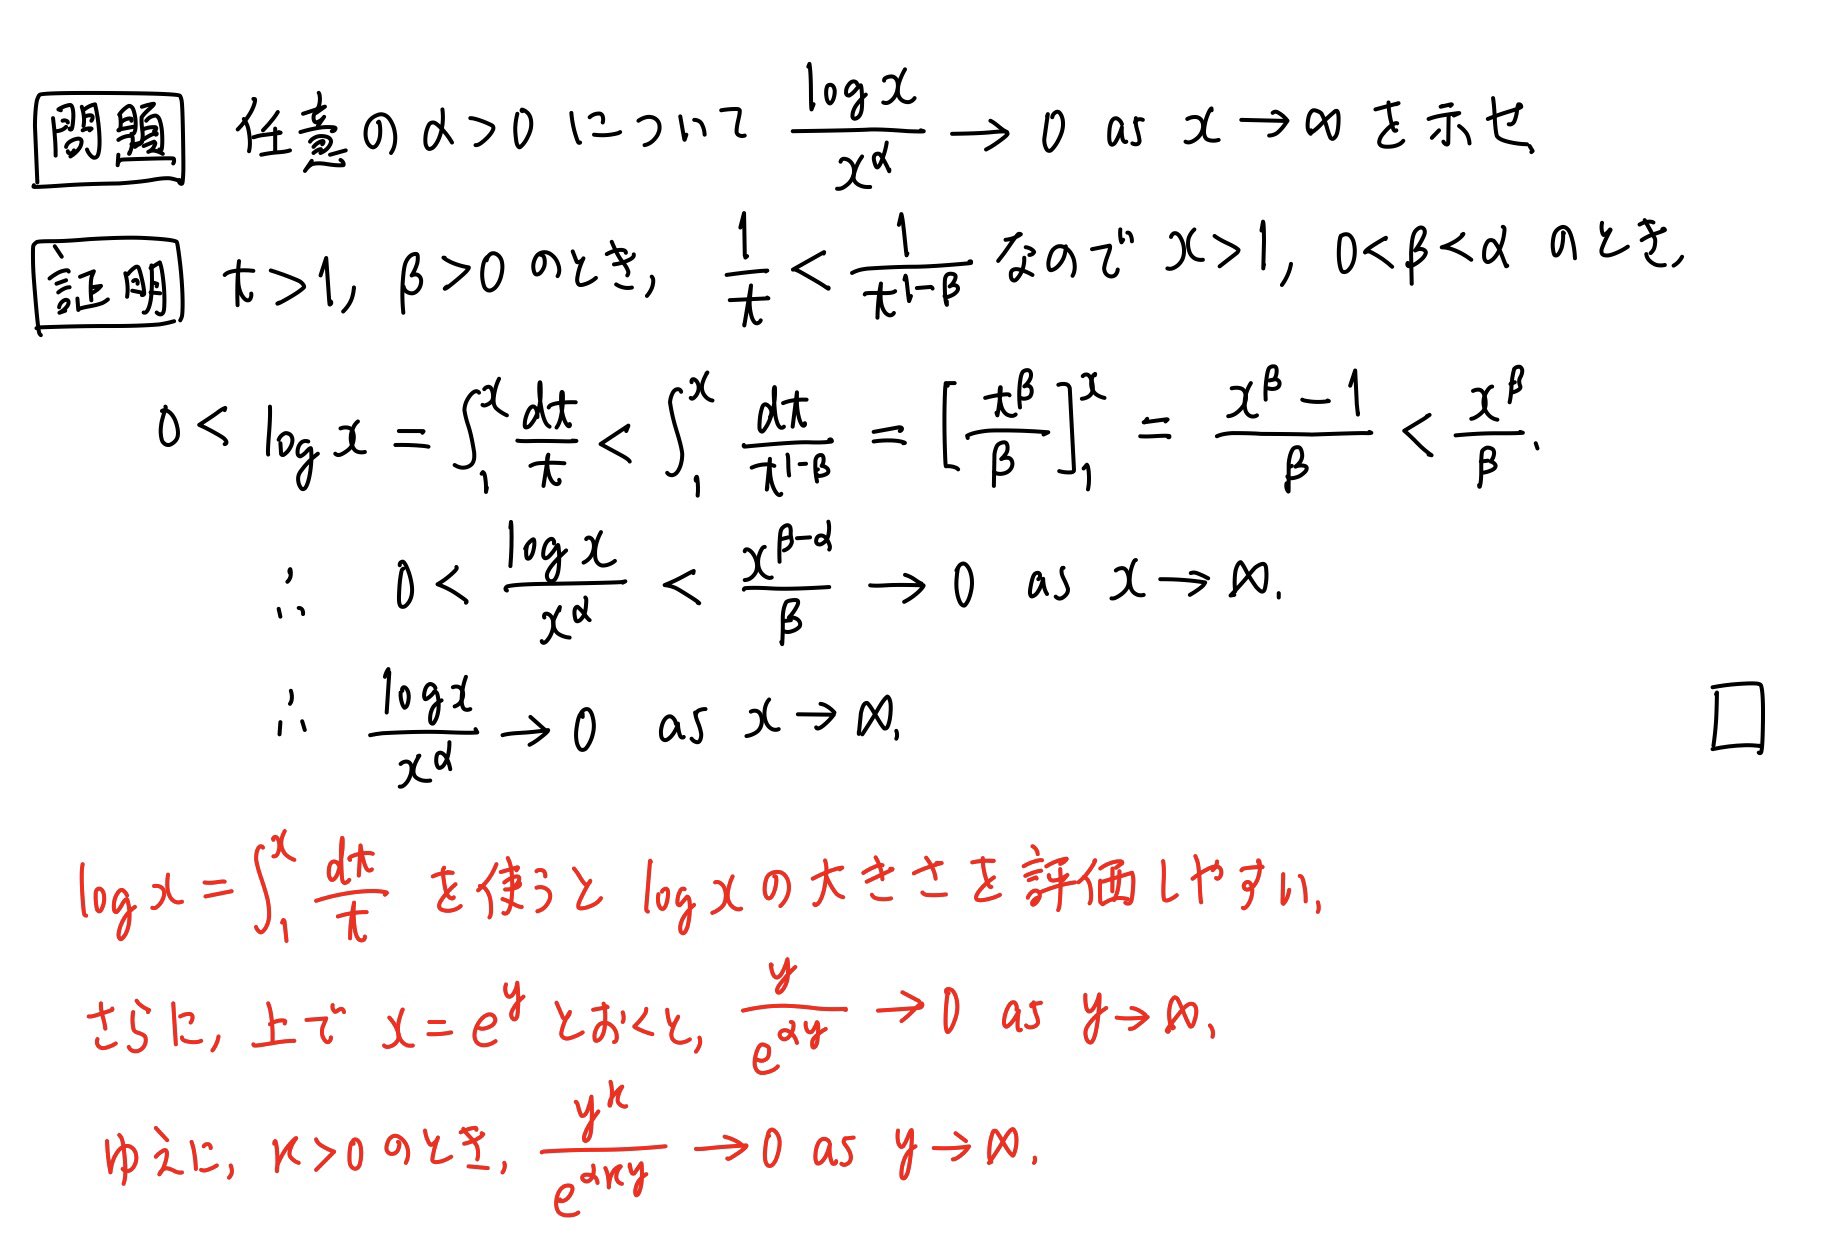 問題 任意の α>0 について \frac{\log x}{x^α} → 0 as x→∞ を示せ
証明 t>1, β>0 のとき, \frac{1}{t} < \frac{1}{t^{1-β}} なので x>1, 0<β<α のとき,
0 < \log x = \int_1^x \frac{dt}{t} < \int_1^x \frac{dt}{t^{1-β}} = \left[ \frac{t^β}{β} \right]_1^x = \frac{x^β - 1}{β} < \frac{x^β}{β}.
∴ 0 < \frac{\log x}{x^α} < \frac{x^{β-α}}{β} → 0 as x→∞.
∴ \frac{\log x}{x^α} → 0 as x→∞. □
\log x = \int_1^x \frac{dt}{t} を使うと \log x の大きさを評価しやすい.
さらに, 上で x = e^y とおくと, \frac{y}{e^{αy}} → 0 as y→∞.
ゆえに, κ>0 のとき, \frac{y^κ}{e^{ακy}} → 0 as y→∞.